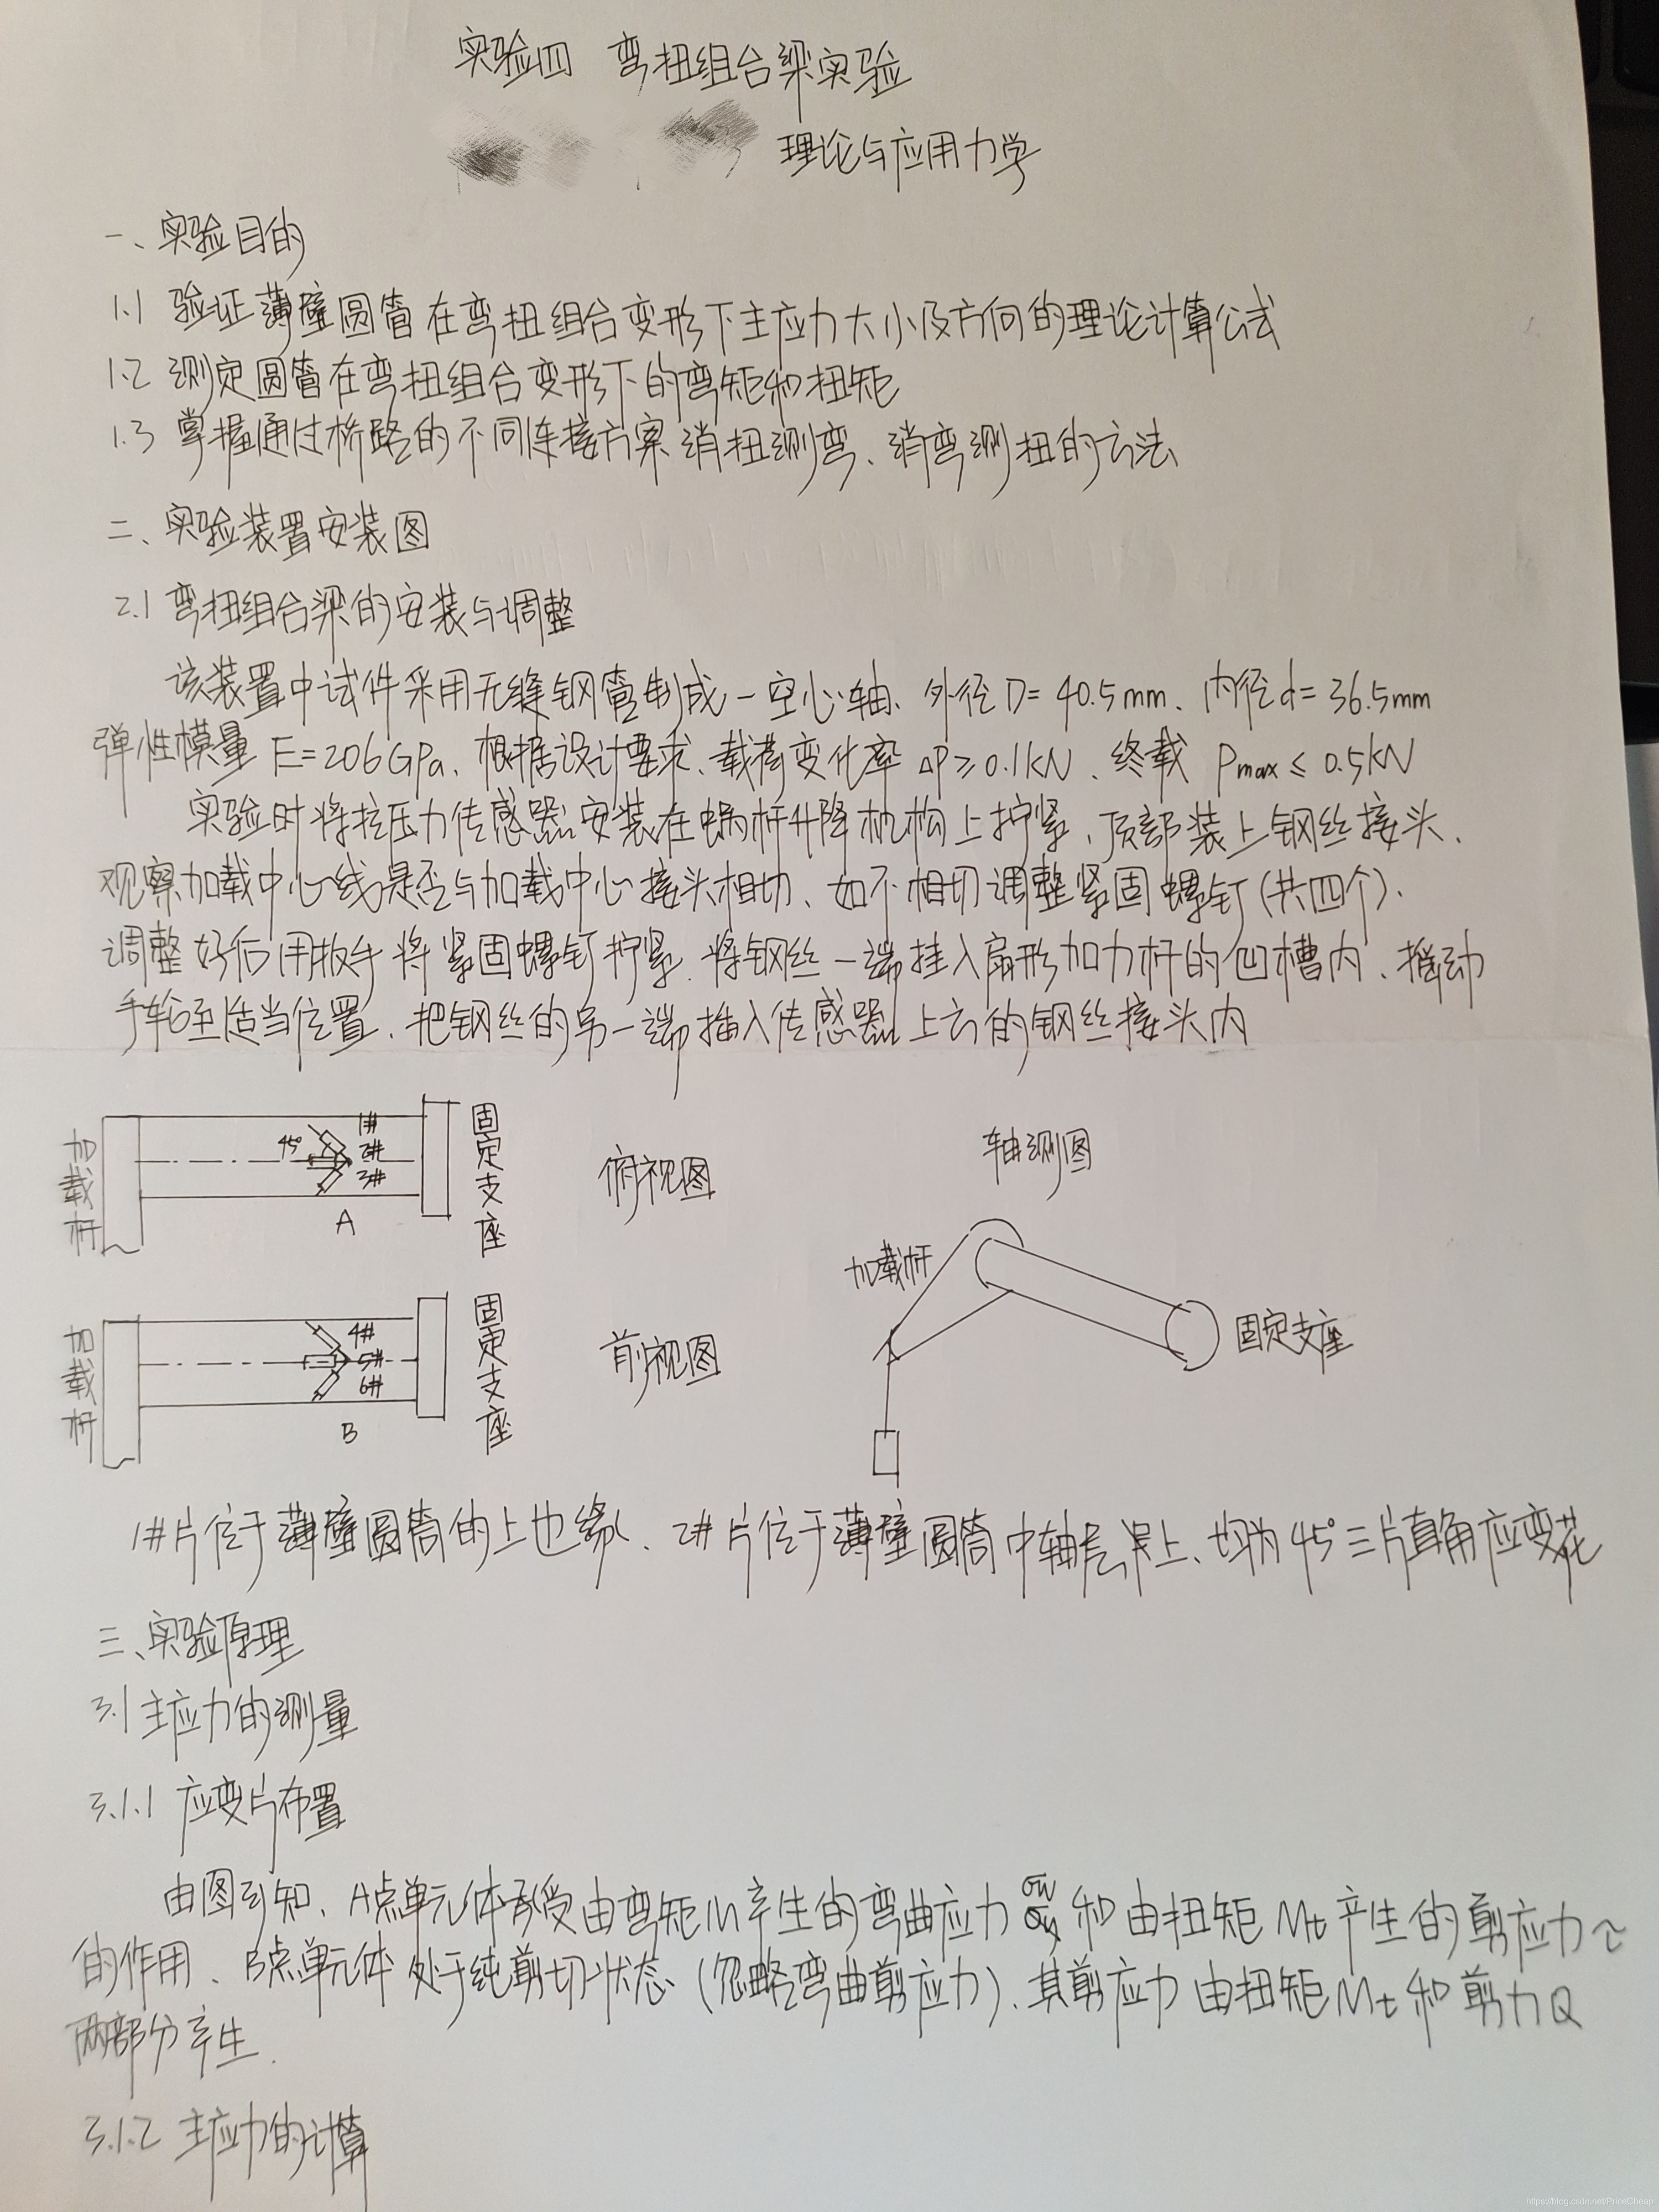 实验四 弯扭组合梁实验
理论与应用力学
一、实验目的
1.1 验证薄壁圆管在弯扭组合变形下主应力大小及方向的理论计算公式
1.2 测定圆管在弯扭组合变形下的弯矩和扭矩
1.3 掌握通过桥路的不同连接方案消扭测弯、消弯测扭的方法
二、实验装置安装图
2.1 弯扭组合梁的安装与调整
该装置中试件采用无缝钢管制成一空心轴、外径D=40.5mm、内径d=36.5mm
弹性模量 E=206GPa、根据设计要求、载荷变化率 △P≥0.1kN、终载 Pmax≤0.5kN
实验时将拉压力传感器安装在蜗杆升降机构上拧紧、顶部装上钢丝接头、
观察加载中心线是否与加载中心接头相切、如不相切调整紧固螺钉(共四个).
调整好后用扳手将紧固螺钉拧紧.将钢丝一端挂入扇形加力杆的凹槽内、摇动
手轮至适当位置、把钢丝的另一端插入传感器上方的钢丝接头内
加载杆
45°
1#
2#
3#
A
固定支座
俯视图
轴测图
加载杆
固定支座
加载杆
4#
5#
6#
B
固定支座
前视图
1#片位于薄壁圆筒的上边缘、2#片位于薄壁圆筒中轴层上、均为45°三片直角应变花
三、实验原理
3.1 主应力的测量
3.1.1 应变片布置
由图可知、A点单元体承受由弯矩M产生的弯曲应力σw和由扭矩Mt产生的剪应力τ
的作用、B点单元体处于纯剪切状态(忽略弯曲剪应力)、其剪应力由扭矩Mt和剪力Q
两部分产生.
3.1.2 主应力的计算
https://blog.csdn.net/PriceCheap